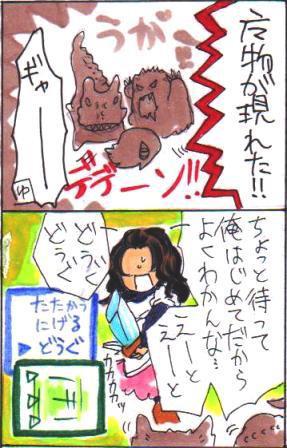 魔物が現れた!!
うがー
ギャーー
ゆ
デデーン!!
ちょっと待って
俺はじめてだから
よくわかんな…
えーと
えーと
どうぐ
どうぐ
たたかう
にげる
▶どうぐ